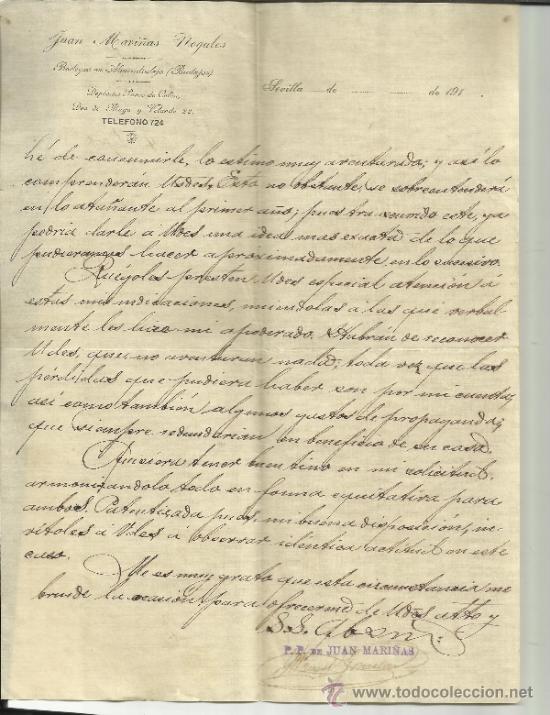 Juan Mariñas Nogales
Bodegas en Almendralejo (Badajoz)
Depósito: Paseo de Colón,
Dos de Mayo y Velarde 22.
TELEFONO 724
Sevilla de de 191
hé de consumirle, lo estimo muy aventurado; y así lo
comprenderán Ustedes. Esto no obstante, se sobreentenderá
en lo atañante al primer año; pues transcurrido este, ya
podría darle á Udes una idea mas exacta de lo que
pudieramos hacer aproximadamente en lo sucesivo.
Ruégoles presten Udes especial atención á
estas mis indicaciones, uniendolas a las que verbal-
mente les hizo mi apoderado. Habrán de reconocer
Udes, que no aventuran nada; toda vez que las
pérdidas que pudiera haber son por mi cuenta,
así como también, algunos gastos de propaganda;
que siempre redundarian en beneficio de su casa.
Quisiera tener buen tino en mi solicitud,
armonizandolo todo en forma equitativa para
ambos. Patentizada pues, mi buena disposición, in-
vitoles a Udes a observar idéntica actitud en este
caso.
Me es muy grato que esta circunstancia me
brinde la ocasión para ofrecerme de Udes atto y
S.S.
P. P. DE JUAN MARIÑAS
www.todocoleccion.net